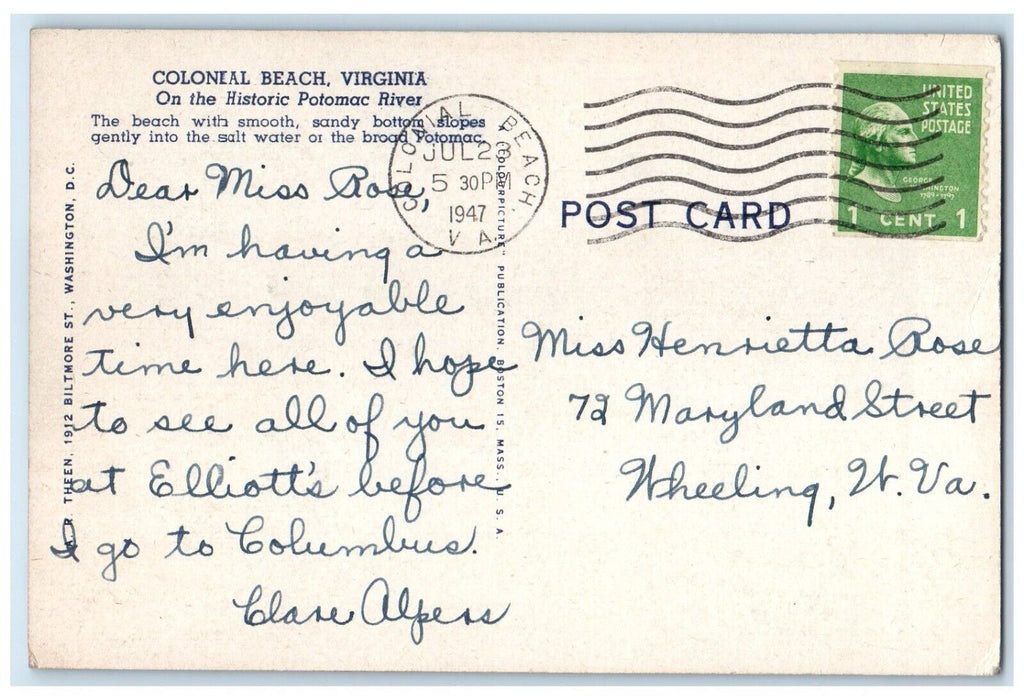 COLONIAL BEACH, VIRGINIA
On the Historic Potomac River
The beach with smooth, sandy bottom slopes
gently into the salt water or the broad Potomac.
Dear Miss Rose,
I'm having a
very enjoyable
time here. I hope
to see all of you
at Elliott's before
I go to Columbus.
Clare Alpers
R. THEEN, 1912 BILTMORE ST., WASHINGTON, D.C.
"COLOURPICTURE" PUBLICATION, BOSTON 15, MASS., U. S. A.
COLONIAL BEACH,
JUL 23
5 30 PM
1947
VA.
POST CARD
UNITED
STATES
POSTAGE
GEORGE
WASHINGTON
1789-1797
1 CENT 1
Miss Henrietta Rose
72 Maryland Street
Wheeling, W. Va.